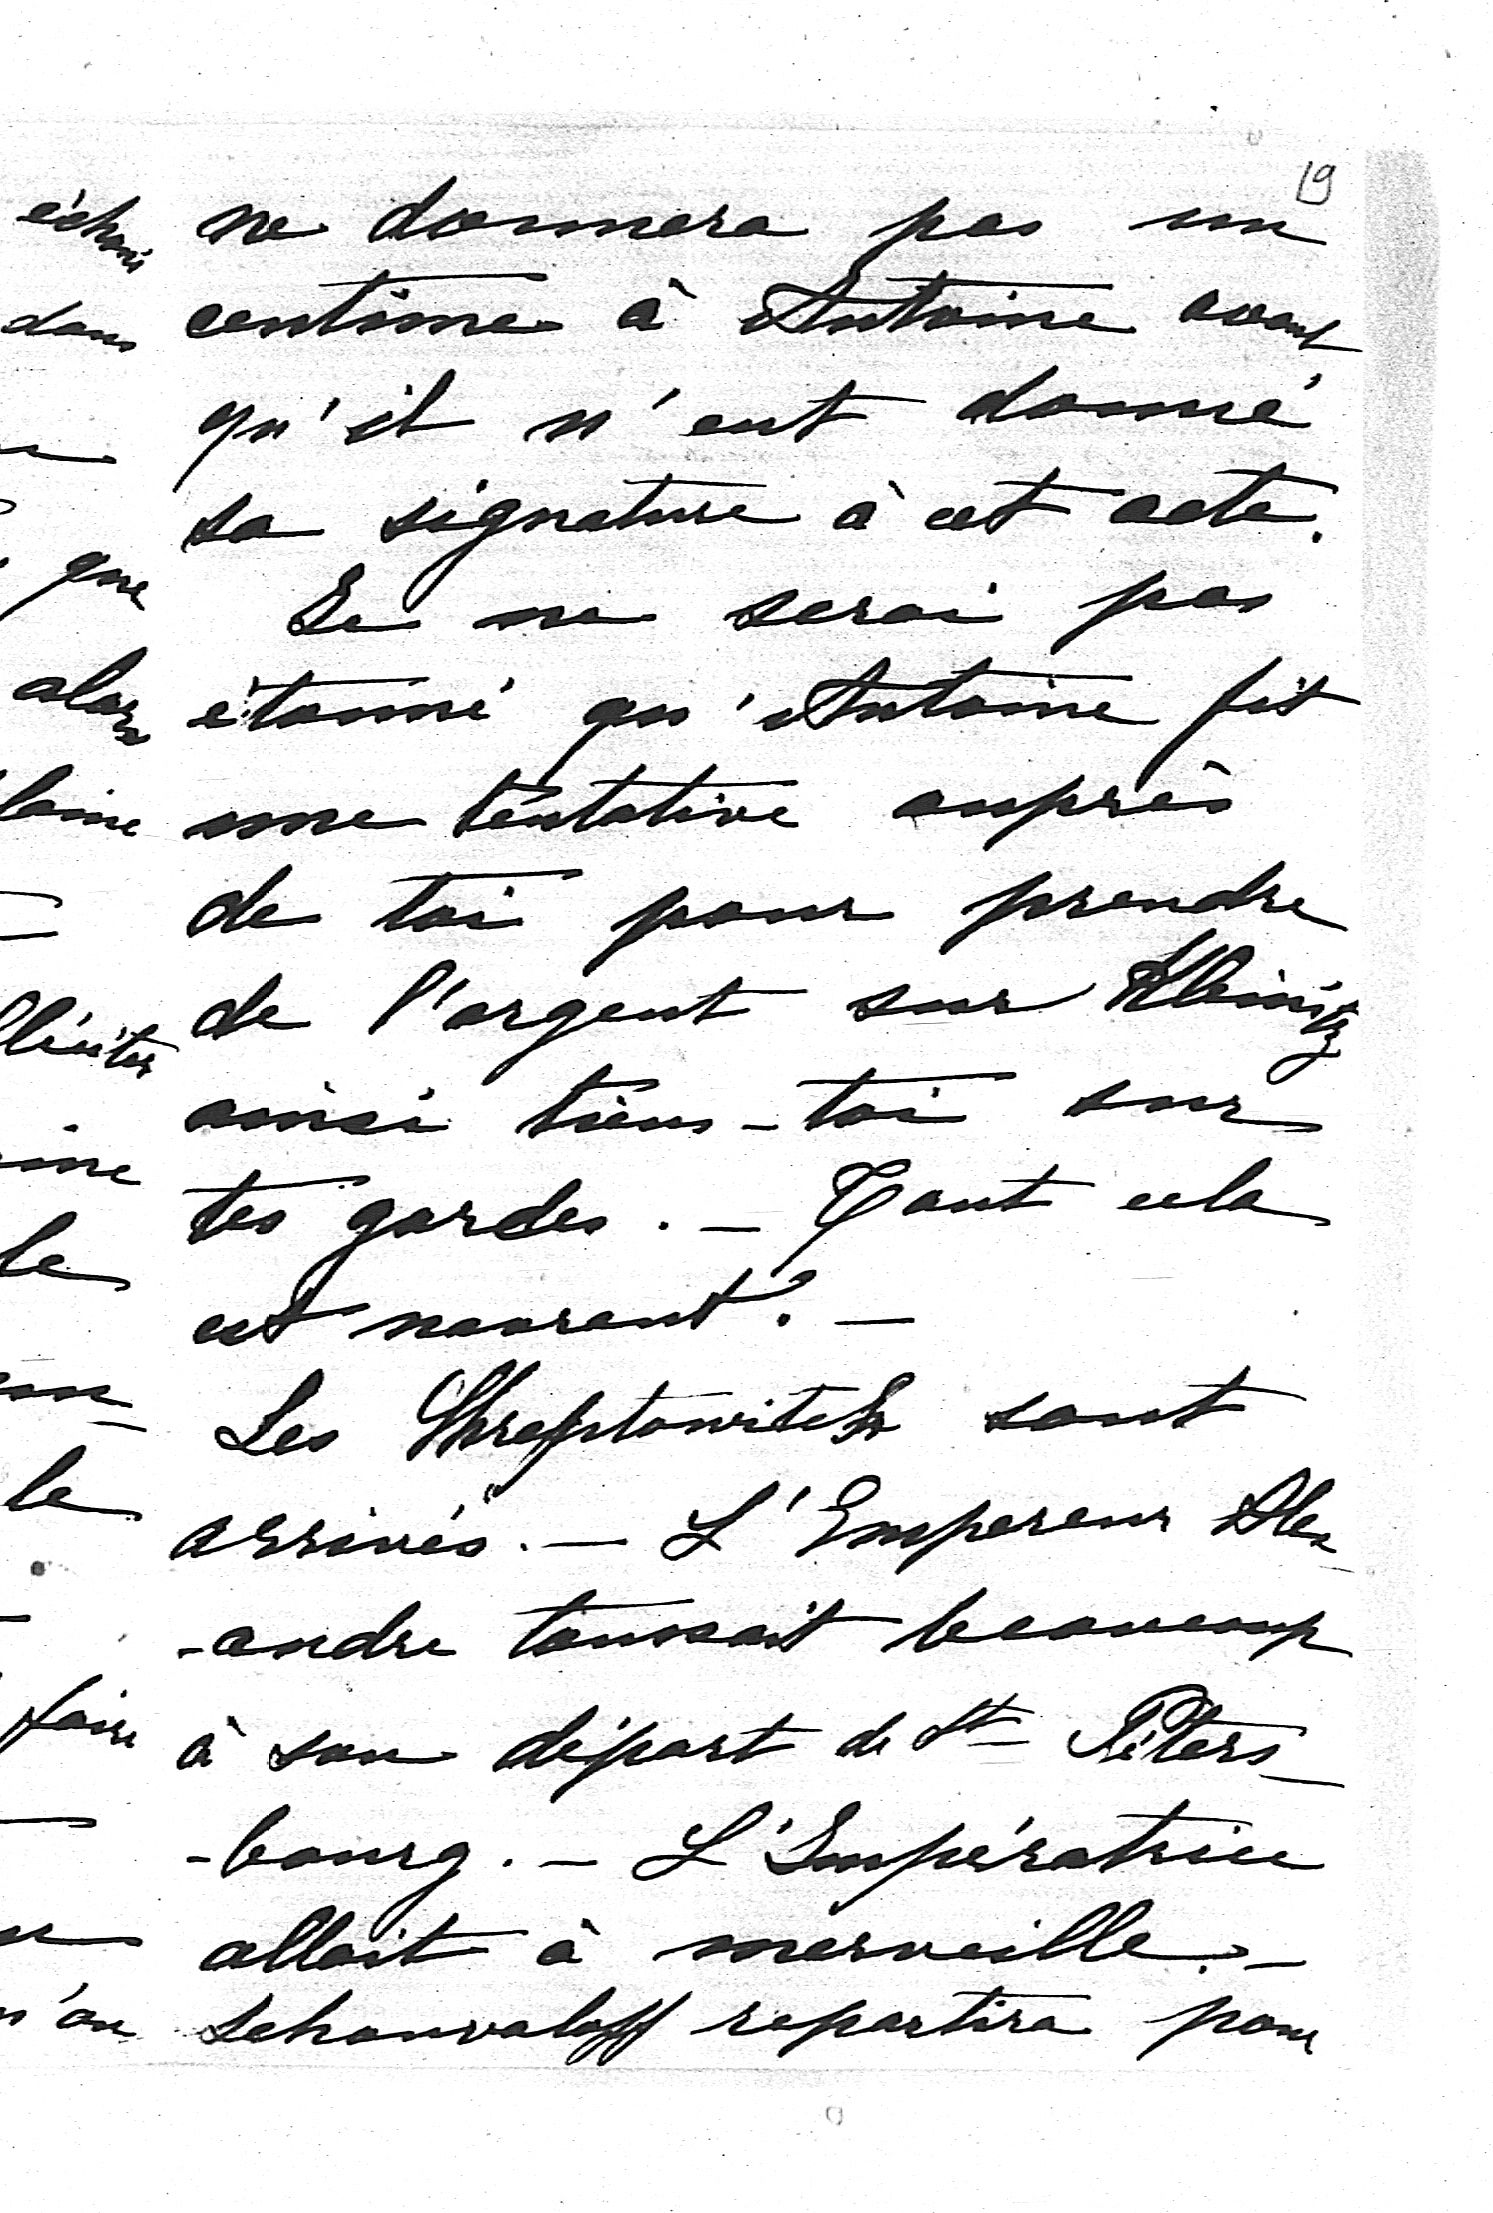 19
ne donnera pas un
centime à Antoine avant
qu'il n'eut donné
sa signature à cet acte.
Je ne serai pas
étonné qu'Antoine fit
une tentative auprès
de toi pour prendre
de l'argent sur Kleinitz
ainsi tiens-toi sur
tes gardes. — Tout cela
est navrant. —
Les Chreptowitch sont
arrivés. — L'Empereur Alex
-andre toussait beaucoup
à son départ de St Péters-
-bourg. — L'Impératrice
allait à merveille. —
Schouvaloff repartira pour
dans
que
alors
le
le
faire